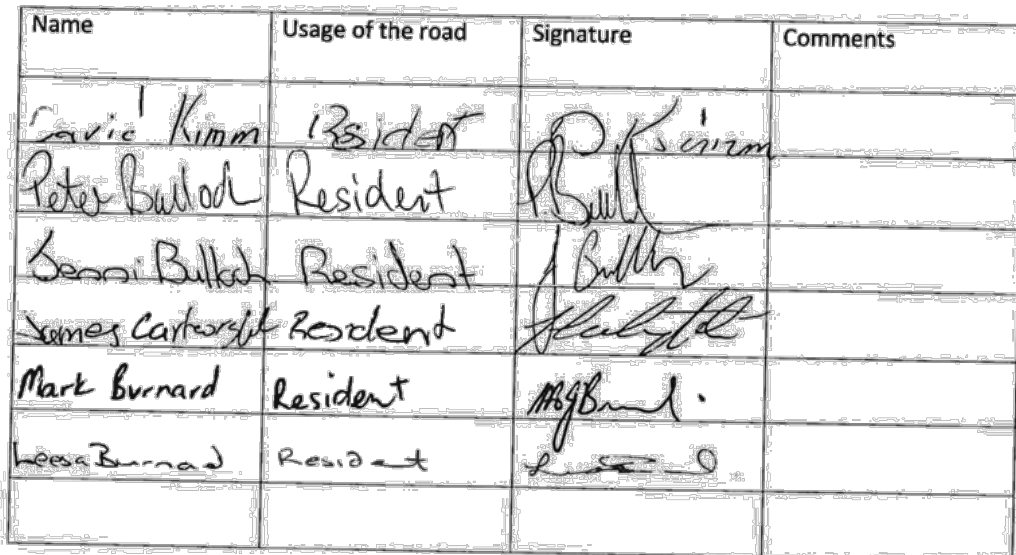 Name Usage of the road Signature Comments
David Kimm Resident
Peter Bulloch Resident
Jenni Bulloch Resident
James Cartwright Resident
Mark Burnard Resident
Leesa Burnard Resident